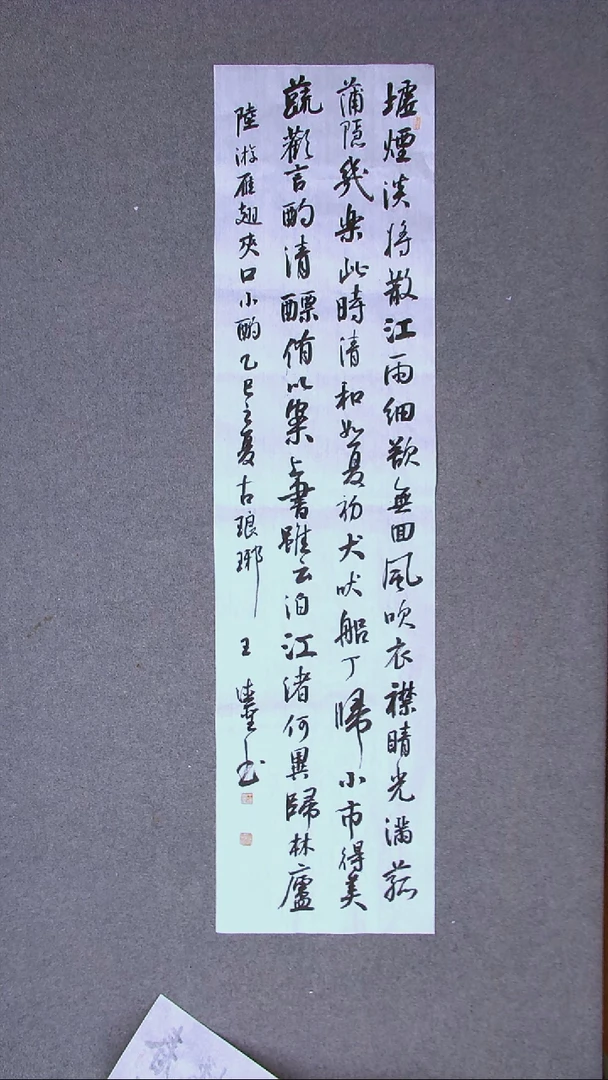 墟煙淡將散江雨細欲無回風吹衣襟晴光滿菰
蒲隱几樂此時清和如夏初犬吠船丁歸小市得美
蔬歡言酌清醥侑以案上書雖云泊江渚何異歸林廬
陸游雁翅夾口小酌乙巳之夏古琅琊王 書